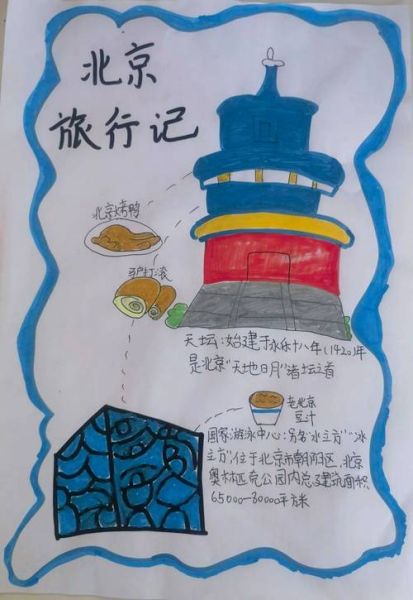 北京
旅行记
北京烤鸭
驴打滚
天坛:始建于永乐十八年(1420)年
是北京“天地日月”诸坛之首
老北京
豆汁
国家游泳中心:另名“水立方”“冰
立方”位于北京市朝阳区,北京
奥林匹克公园内总建筑面积
65000-80000平方米